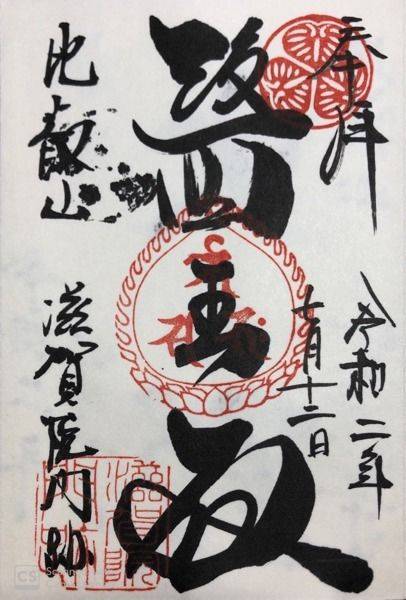 奉拝
令和二年
七月十二日
醫王
比叡山
滋賀院門跡
CS